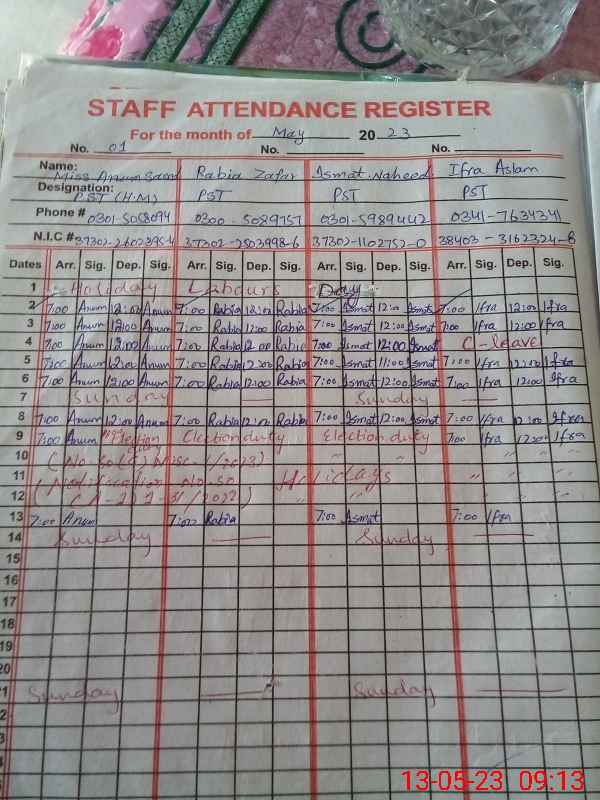 STAFF ATTENDANCE REGISTER
For the month of May 2023
No. 01 No. No.
Name: Miss Anum Saeed Rabia Zafar Ismat Naheed Ifra Aslam
Designation: PST (H.M) PST PST PST
Phone # 0301-5058094 0300-5089757 0301-5989442 0341-7634341
N.I.C # 37302-2503998-6 37302-1102752-0 38403-3162324-6
Dates Arr. Sig. Dep. Sig. Arr. Sig. Dep. Sig. Arr. Sig. Dep. Sig. Arr. Sig. Dep. Sig.
1 Holiday Labours Day
2 7:00 Anum 12:00 Anum 7:00 Rabia 12:00 Rabia 7:00 Ismat 12:00 Ismat 7:00 Ifra 12:00 Ifra
3 7:00 Anum 12:00 Anum 7:00 Rabia 12:00 Rabia 7:00 Ismat 12:00 Ismat 7:00 Ifra 12:00 Ifra
4 7:00 Anum 12:00 Anum 7:00 Rabia 12:00 Rabia 7:00 Ismat 12:00 Ismat C-leave
5 7:00 Anum 12:00 Anum 7:00 Rabia 12:00 Rabia 7:00 Ismat 11:00 Ismat 7:00 Ifra 12:00 Ifra
6 7:00 Anum 12:00 Anum 7:00 Rabia 12:00 Rabia 7:00 Ismat 12:00 Ismat 7:00 Ifra 12:00 Ifra
7 Sunday Sunday
8 7:00 Anum 12:00 Anum 7:00 Rabia 12:00 Rabia 7:00 Ismat 12:00 Ismat 7:00 Ifra 12:00 Ifra
9 7:00 Anum Election duty Election duty Election duty 7:00 Ifra 12:00 Ifra
10 (No-SO( ) Misc-1/2023) " " " " " "
11 (Notification No-SO Holidays " " "
12 " " " " "
13 7:00 Anum 7:00 Rabia 7:00 Ismat 7:00 Ifra
14 Sunday Sunday
15
16
17
18
19
20
21 Sunday Sunday
13-05-23 09:13